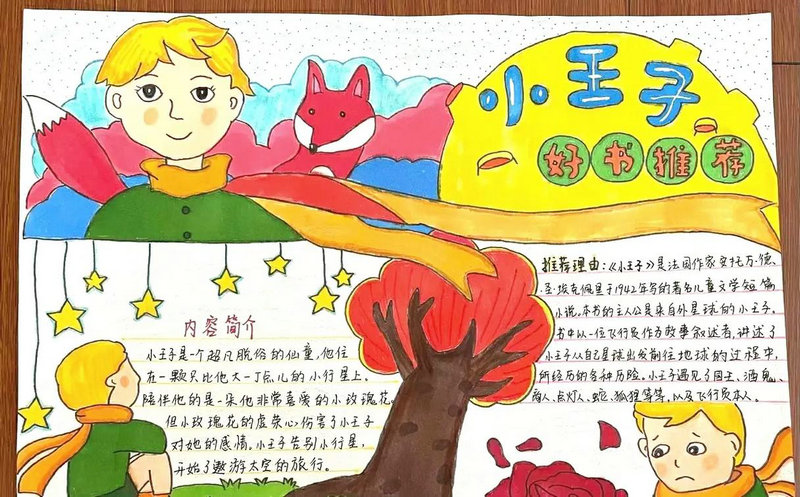 小王子
好书推荐
内容简介
小王子是一个超凡脱俗的仙童,他住
在一颗只比他大一丁点儿的小行星上.
陪伴他的是一朵他非常喜爱的小玫瑰花。
但小玫瑰花的虚荣心伤害了小王子
对她的感情。小王子告别小行星,
开始了遨游太空的旅行。
推荐理由:《小王子》是法国作家安托万·德.
圣·埃克佩里于1942年写的著名儿童文学短篇
小说.本书的主人公是来自外星球的小王子.
书中以一位飞行员作为故事叙述者,讲述了
小王子从自己星球出发前往地球的过程中,
所经历的各种历险。小王子遇见了国王、酒鬼、
商人、点灯人、蛇、狐狸等等,以及飞行员本人。